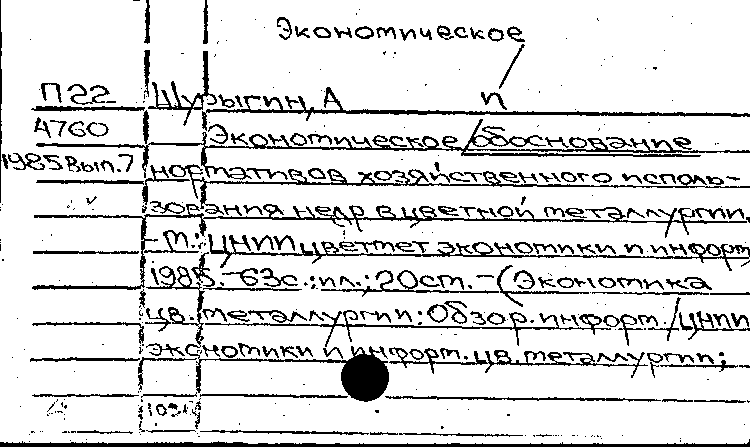 Экономическое
П22 Шурыгин, А п
4760 Экономическое обоснование
1985 Вып.7 нормативов хозяйственного исполь-
зования недр в цветной металлургии.
- М.: ЦНИИцветмет экономики и информ
1985. - 63с.: ил.; 20см. - (Экономика
цв. металлургии: Обзор. информ. / ЦНИИ
экономики и информ. цв. металлургии;